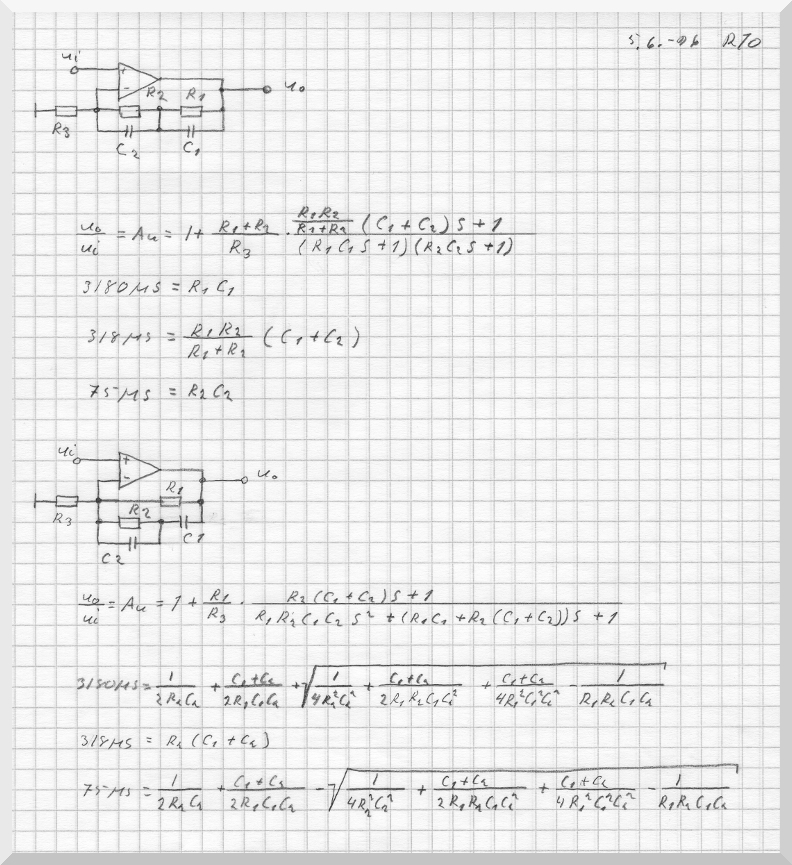 5.6.-96 RJO
ui
+
-
uo
R2 R1
R3
C2 C1
uo/ui = Au = 1 + (R1+R2)/R3 · ((R1R2)/(R1+R2) (C1+C2)S+1)/((R1C1S+1)(R2C2S+1))
3180μs = R1C1
318μs = (R1R2)/(R1+R2) (C1+C2)
75μs = R2C2
ui
+
-
uo
R1
R3 R2
C1
C2
uo/ui = Au = 1 + R1/R3 · (R2(C1+C2)S+1)/(R1R2C1C2S² + (R1C1+R2(C1+C2))S+1)
3180μs = 1/(2R2C2) + (C1+C2)/(2R1C1C2) + √(1/(4R2²C2²) + (C1+C2)/(2R1R2C1C2²) + (C1+C2)/(4R1²C1²C2²) - 1/(R1R2C1C2))
318μs = R2(C1+C2)
75μs = 1/(2R2C2) + (C1+C2)/(2R1C1C2) - √(1/(4R2²C2²) + (C1+C2)/(2R1R2C1C2²) + (C1+C2)/(4R1²C1²C2²) - 1/(R1R2C1C2))